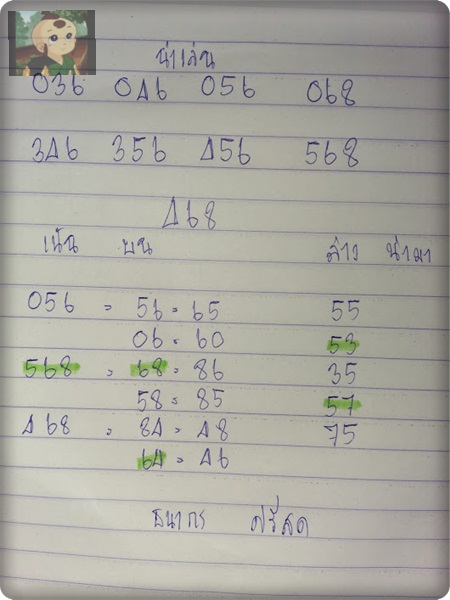 น่าเล่น
036 046 056 068
346 356 456 568
468
เน้น บน ล่าง น่ามา
056 = 56 = 65 55
06 = 60 53
568 = 68 = 86 35
58 = 85 57
468 = 84 = 48 75
64 = 46
ธนากร ศรีสด